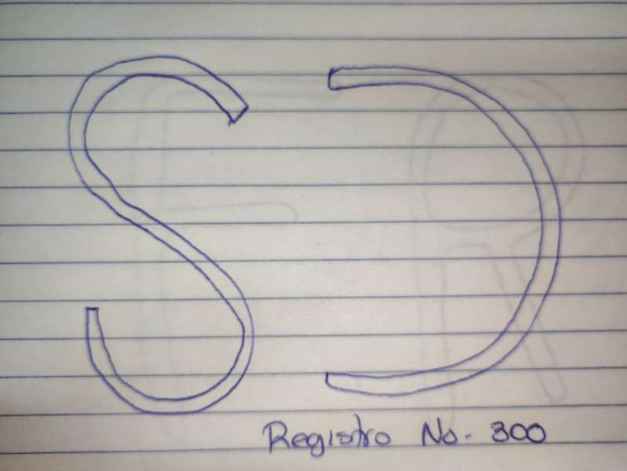 S Ɔ
Registro No. 300